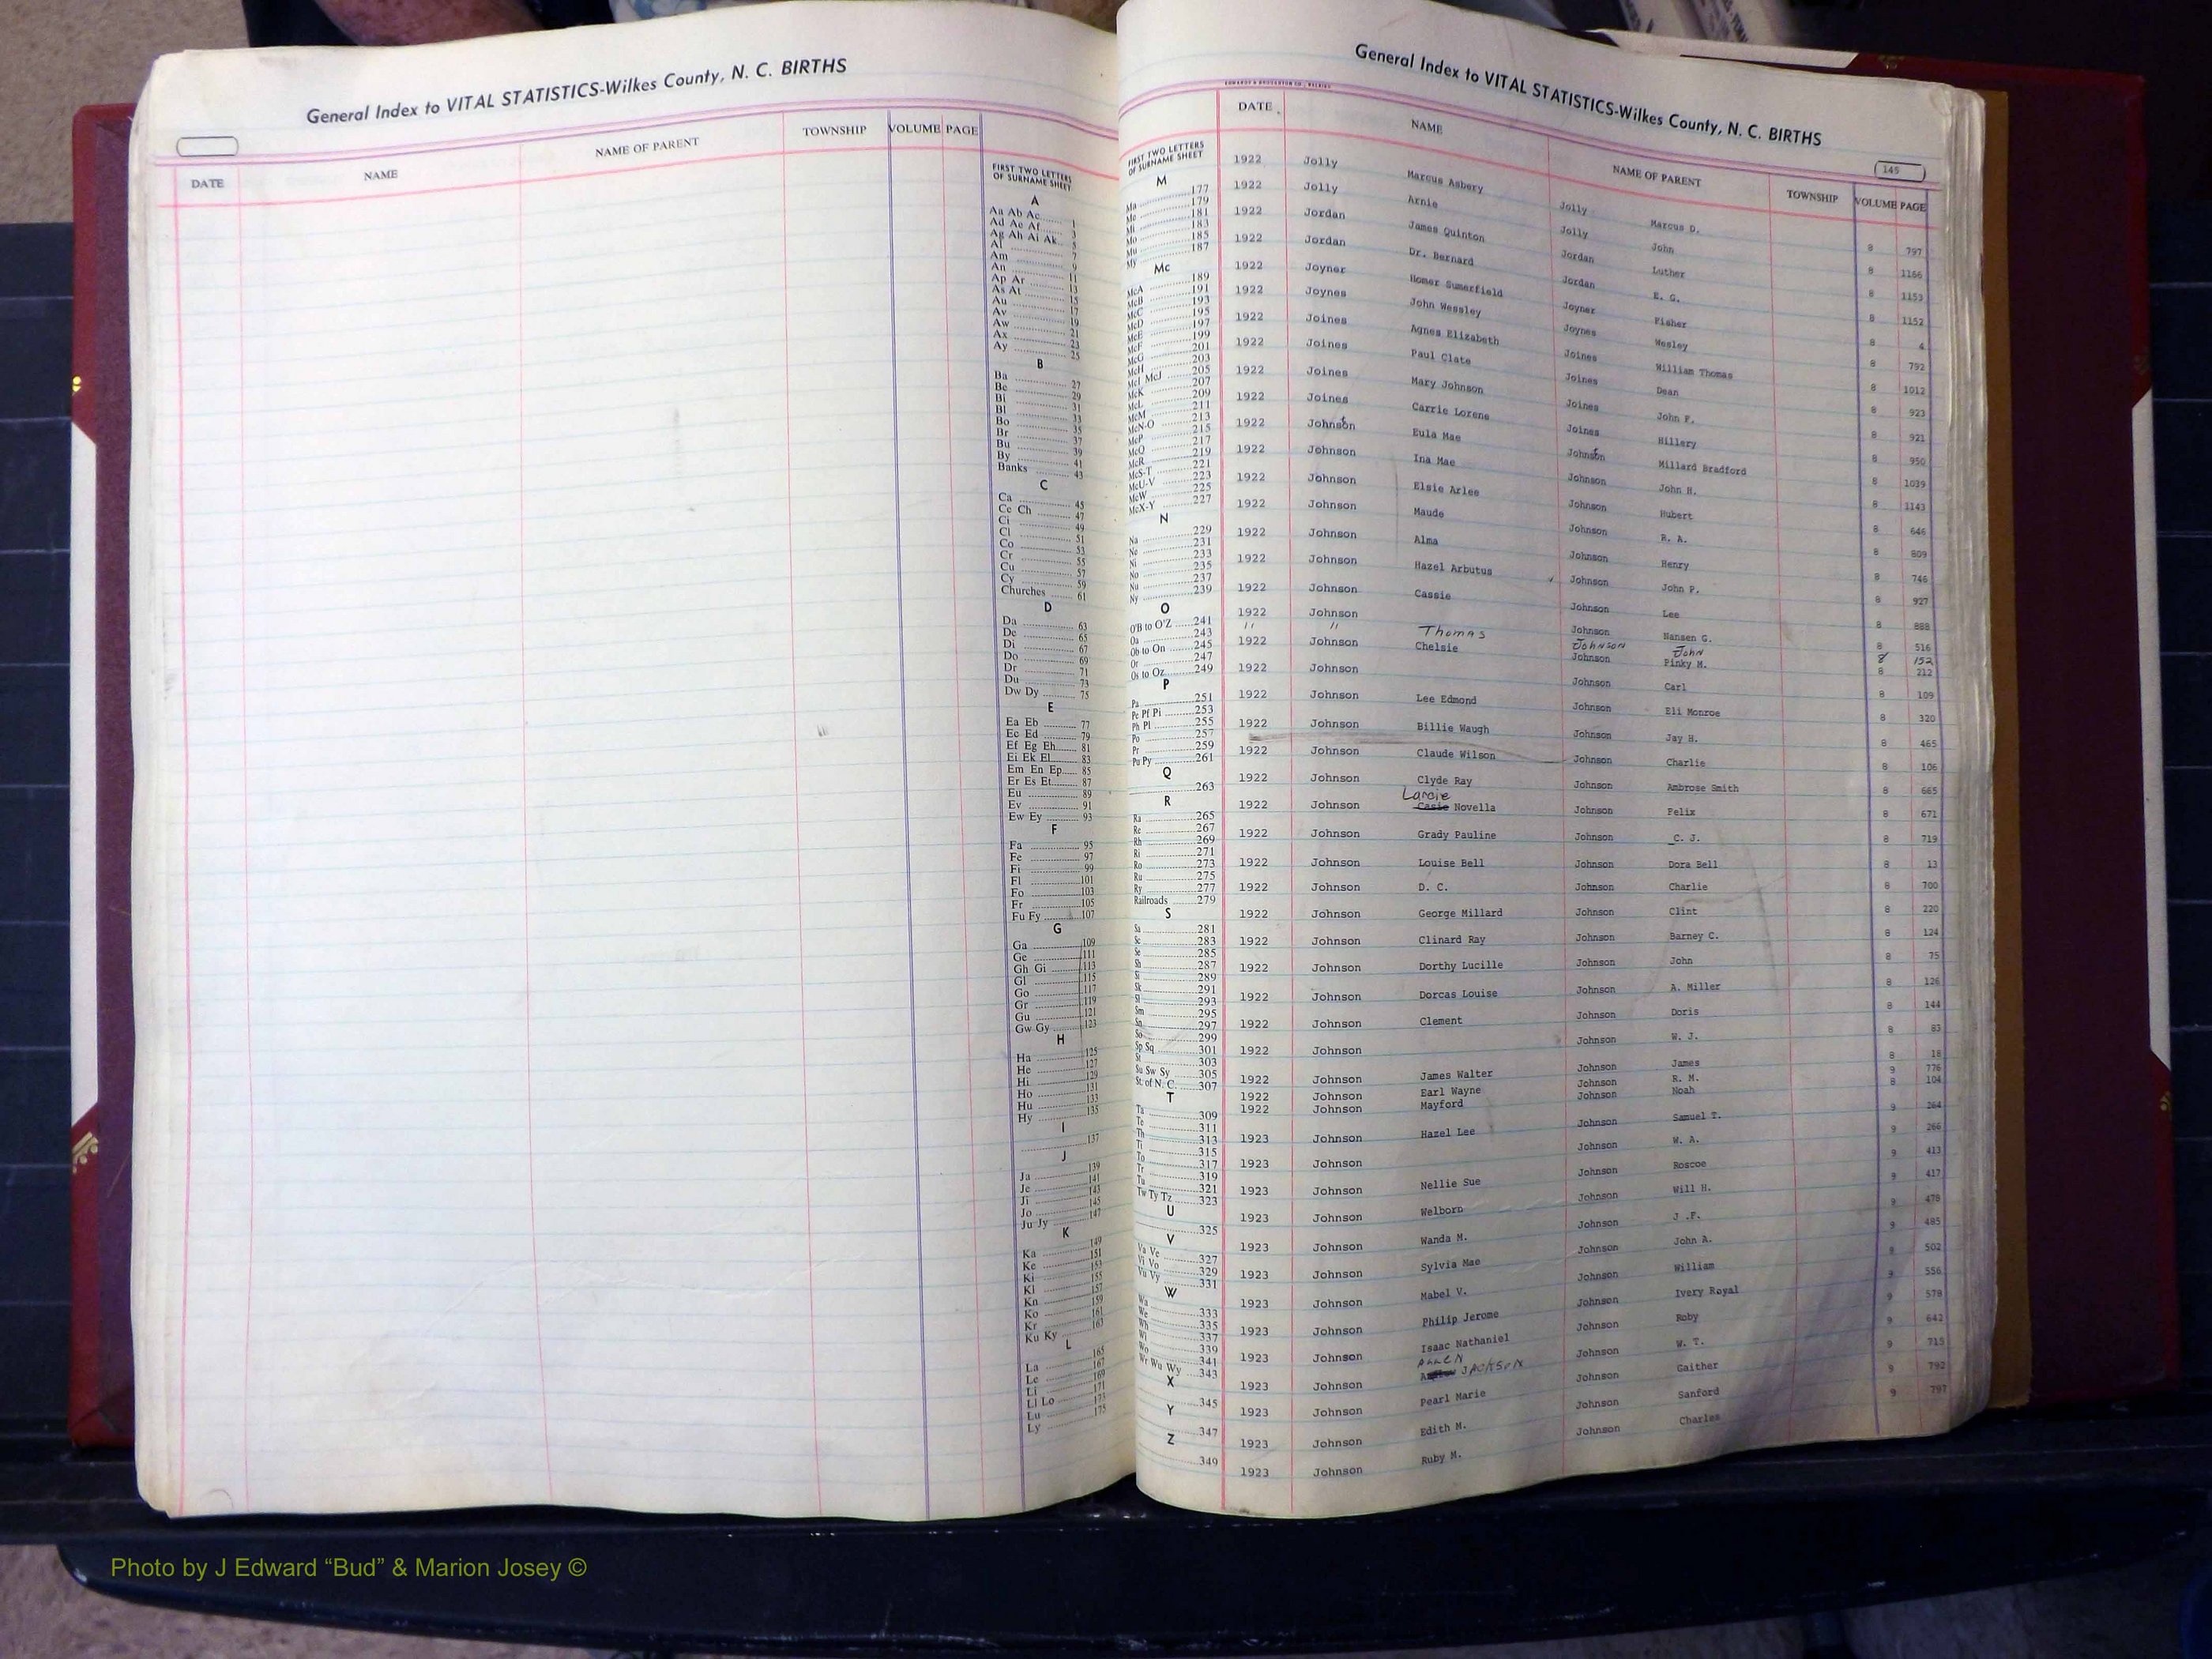 General Index to VITAL STATISTICS-Wilkes County, N. C. BIRTHS
DATE NAME NAME OF PARENT TOWNSHIP VOLUME PAGE
FIRST TWO LETTERS
OF SURNAME SHEET
A
Aa Ab Ac 1
Ad Ae Af 3
Ag Ah Ai Ak 5
Al 7
Am 9
An 11
Ap Ar 13
As At 15
Au 17
Av 19
Aw 21
Ax 23
Ay 25
B
Ba 27
Be 29
Bi 31
Bl 33
Bo 35
Br 37
Bu 39
By 41
Banks 43
C
Ca 45
Ce Ch 47
Ci 49
Cl 51
Co 53
Cr 55
Cu 57
Cy 59
Churches 61
D
Da 63
De 65
Di 67
Do 69
Dr 71
Du 73
Dw Dy 75
E
Ea Eb 77
Ec Ed 79
Ef Eg Eh 81
Ei Ek El 83
Em En Ep 85
Er Es Et 87
Eu 89
Ev 91
Ew Ey 93
F
Fa 95
Fe 97
Fi 99
Fl 101
Fo 103
Fr 105
Fu Fy 107
G
Ga 109
Ge 111
Gh Gi 113
Gl 115
Go 117
Gr 119
Gu 121
Gw Gy 123
H
Ha 125
He 127
Hi 129
Ho 131
Hu 133
Hy 135
I
137
J
Ja 139
Je 141
Ji 143
Jo 145
Ju Jy 147
K
Ka 149
Ke 151
Ki 153
Kl 155
Kn 157
Ko 159
Kr 161
Ku Ky 163
L
La 165
Le 167
Li 169
Ll Lo 171
Lu 173
Ly 175
General Index to VITAL STATISTICS-Wilkes County, N. C. BIRTHS
EDWARDS & BROUGHTON CO., RALEIGH
145
DATE NAME NAME OF PARENT TOWNSHIP VOLUME PAGE
FIRST TWO LETTERS
OF SURNAME SHEET
M
Ma 177
Me 179
Mi 181
Mo 183
Mu 185
My 187
Mc
McA 189
McB 191
McC 193
McD 195
McE 197
McF 199
McG 201
McH 203
McI McJ 205
McK 207
McL 209
McM 211
McN-O 213
McP 215
McQ 217
McR 219
McS-T 221
McU-V 223
McW 225
McX-Y 227
N
Na 229
Ne 231
Ni 233
No 235
Nu 237
Ny 239
O
O'B to O'Z 241
Oa 243
Ob to On 245
Or 247
Os to Oz 249
P
Pa 251
Pe Pf Pi 253
Ph Pl 255
Po 257
Pr 259
Pu Py 261
Q
263
R
Ra 265
Re 267
Rh 269
Ri 271
Ro 273
Ru 275
Ry 277
Railroads 279
S
Sa 281
Sc 283
Se 285
Sh 287
Si 289
Sk 291
Sl 293
Sm 295
Sn 297
So 299
Sp Sq 301
St 303
Su Sw Sy 305
St. of N. C. 307
T
Ta 309
Te 311
Th 313
Ti 315
To 317
Tr 319
Tu 321
Tw Ty Tz 323
U
325
V
Va Ve 327
Vi Vo 329
Vu Vy 331
W
Wa 333
We 335
Wh 337
Wi 339
Wo 341
Wr Wu Wy 343
X
345
Y
347
Z
349
1922 Jolly Marcus Asbery Jolly Marcus D. 8 797
1922 Jolly Arnie Jolly John 8 1166
1922 Jordan James Quinton Jordan Luther 8 1153
1922 Jordan Dr. Bernard Jordan E. G. 8 1152
1922 Joyner Homer Sumerfield Joyner Fisher 8 4
1922 Joynes John Wessley Joynes Wesley 8 792
1922 Joines Agnes Elizabeth Joines William Thomas 8 1012
1922 Joines Paul Clate Joines Dean 8 923
1922 Joines Mary Johnson Joines John F. 8 921
1922 Joines Carrie Lorene Joines Hillery 8 950
1922 Johnston Eula Mae Johnston Millard Bradford 8 1039
1922 Johnson Ina Mae Johnson John H. 8 1143
1922 Johnson Elsie Arlee Johnson Hubert 8 646
1922 Johnson Maude Johnson R. A. 8 809
1922 Johnson Alma Johnson Henry 8 746
1922 Johnson Hazel Arbutus Johnson John P. 8 927
1922 Johnson Cassie Johnson Lee 8 888
1922 Johnson Johnson Hansen G. 8 516
" " Thomas Johnson John 8 152
1922 Johnson Chelsie Johnson Pinky M. 8 212
1922 Johnson Johnson Carl 8 109
1922 Johnson Lee Edmond Johnson Eli Monroe 8 320
1922 Johnson Billie Waugh Johnson Jay H. 8 465
1922 Johnson Claude Wilson Johnson Charlie 8 106
1922 Johnson Clyde Ray Johnson Ambrose Smith 8 665
Larcie
1922 Johnson Casie Novella Johnson Felix 8 671
1922 Johnson Grady Pauline Johnson C. J. 8 719
1922 Johnson Louise Bell Johnson Dora Bell 8 13
1922 Johnson D. C. Johnson Charlie 8 700
1922 Johnson George Millard Johnson Clint 8 220
1922 Johnson Clinard Ray Johnson Barney C. 8 124
1922 Johnson Dorthy Lucille Johnson John 8 75
1922 Johnson Dorcas Louise Johnson A. Miller 8 126
1922 Johnson Clement Johnson Doris 8 144
1922 Johnson Johnson W. J. 8 83
1922 Johnson James Walter Johnson James 8 18
1922 Johnson Earl Wayne Johnson R. M. 9 776
1922 Johnson Mayford Johnson Noah 8 104
1923 Johnson Hazel Lee Johnson Samuel T. 9 264
1923 Johnson Johnson W. A. 9 266
1923 Johnson Nellie Sue Johnson Roscoe 9 413
1923 Johnson Welborn Johnson Will H. 9 417
1923 Johnson Wanda M. Johnson J .F. 9 478
1923 Johnson Sylvia Mae Johnson John A. 9 485
1923 Johnson Mabel V. Johnson William 8 502
1923 Johnson Philip Jerome Johnson Ivery Royal 9 556
1923 Johnson Isaac Nathaniel Johnson Roby 9 578
ALLEN
1923 Johnson JACKSON Johnson W. T. 9 642
1923 Johnson Pearl Marie Johnson Gaither 9 715
1923 Johnson Edith M. Johnson Sanford 9 792
1923 Johnson Ruby M. Johnson Charles 9 797
Photo by J Edward “Bud” & Marion Josey ©